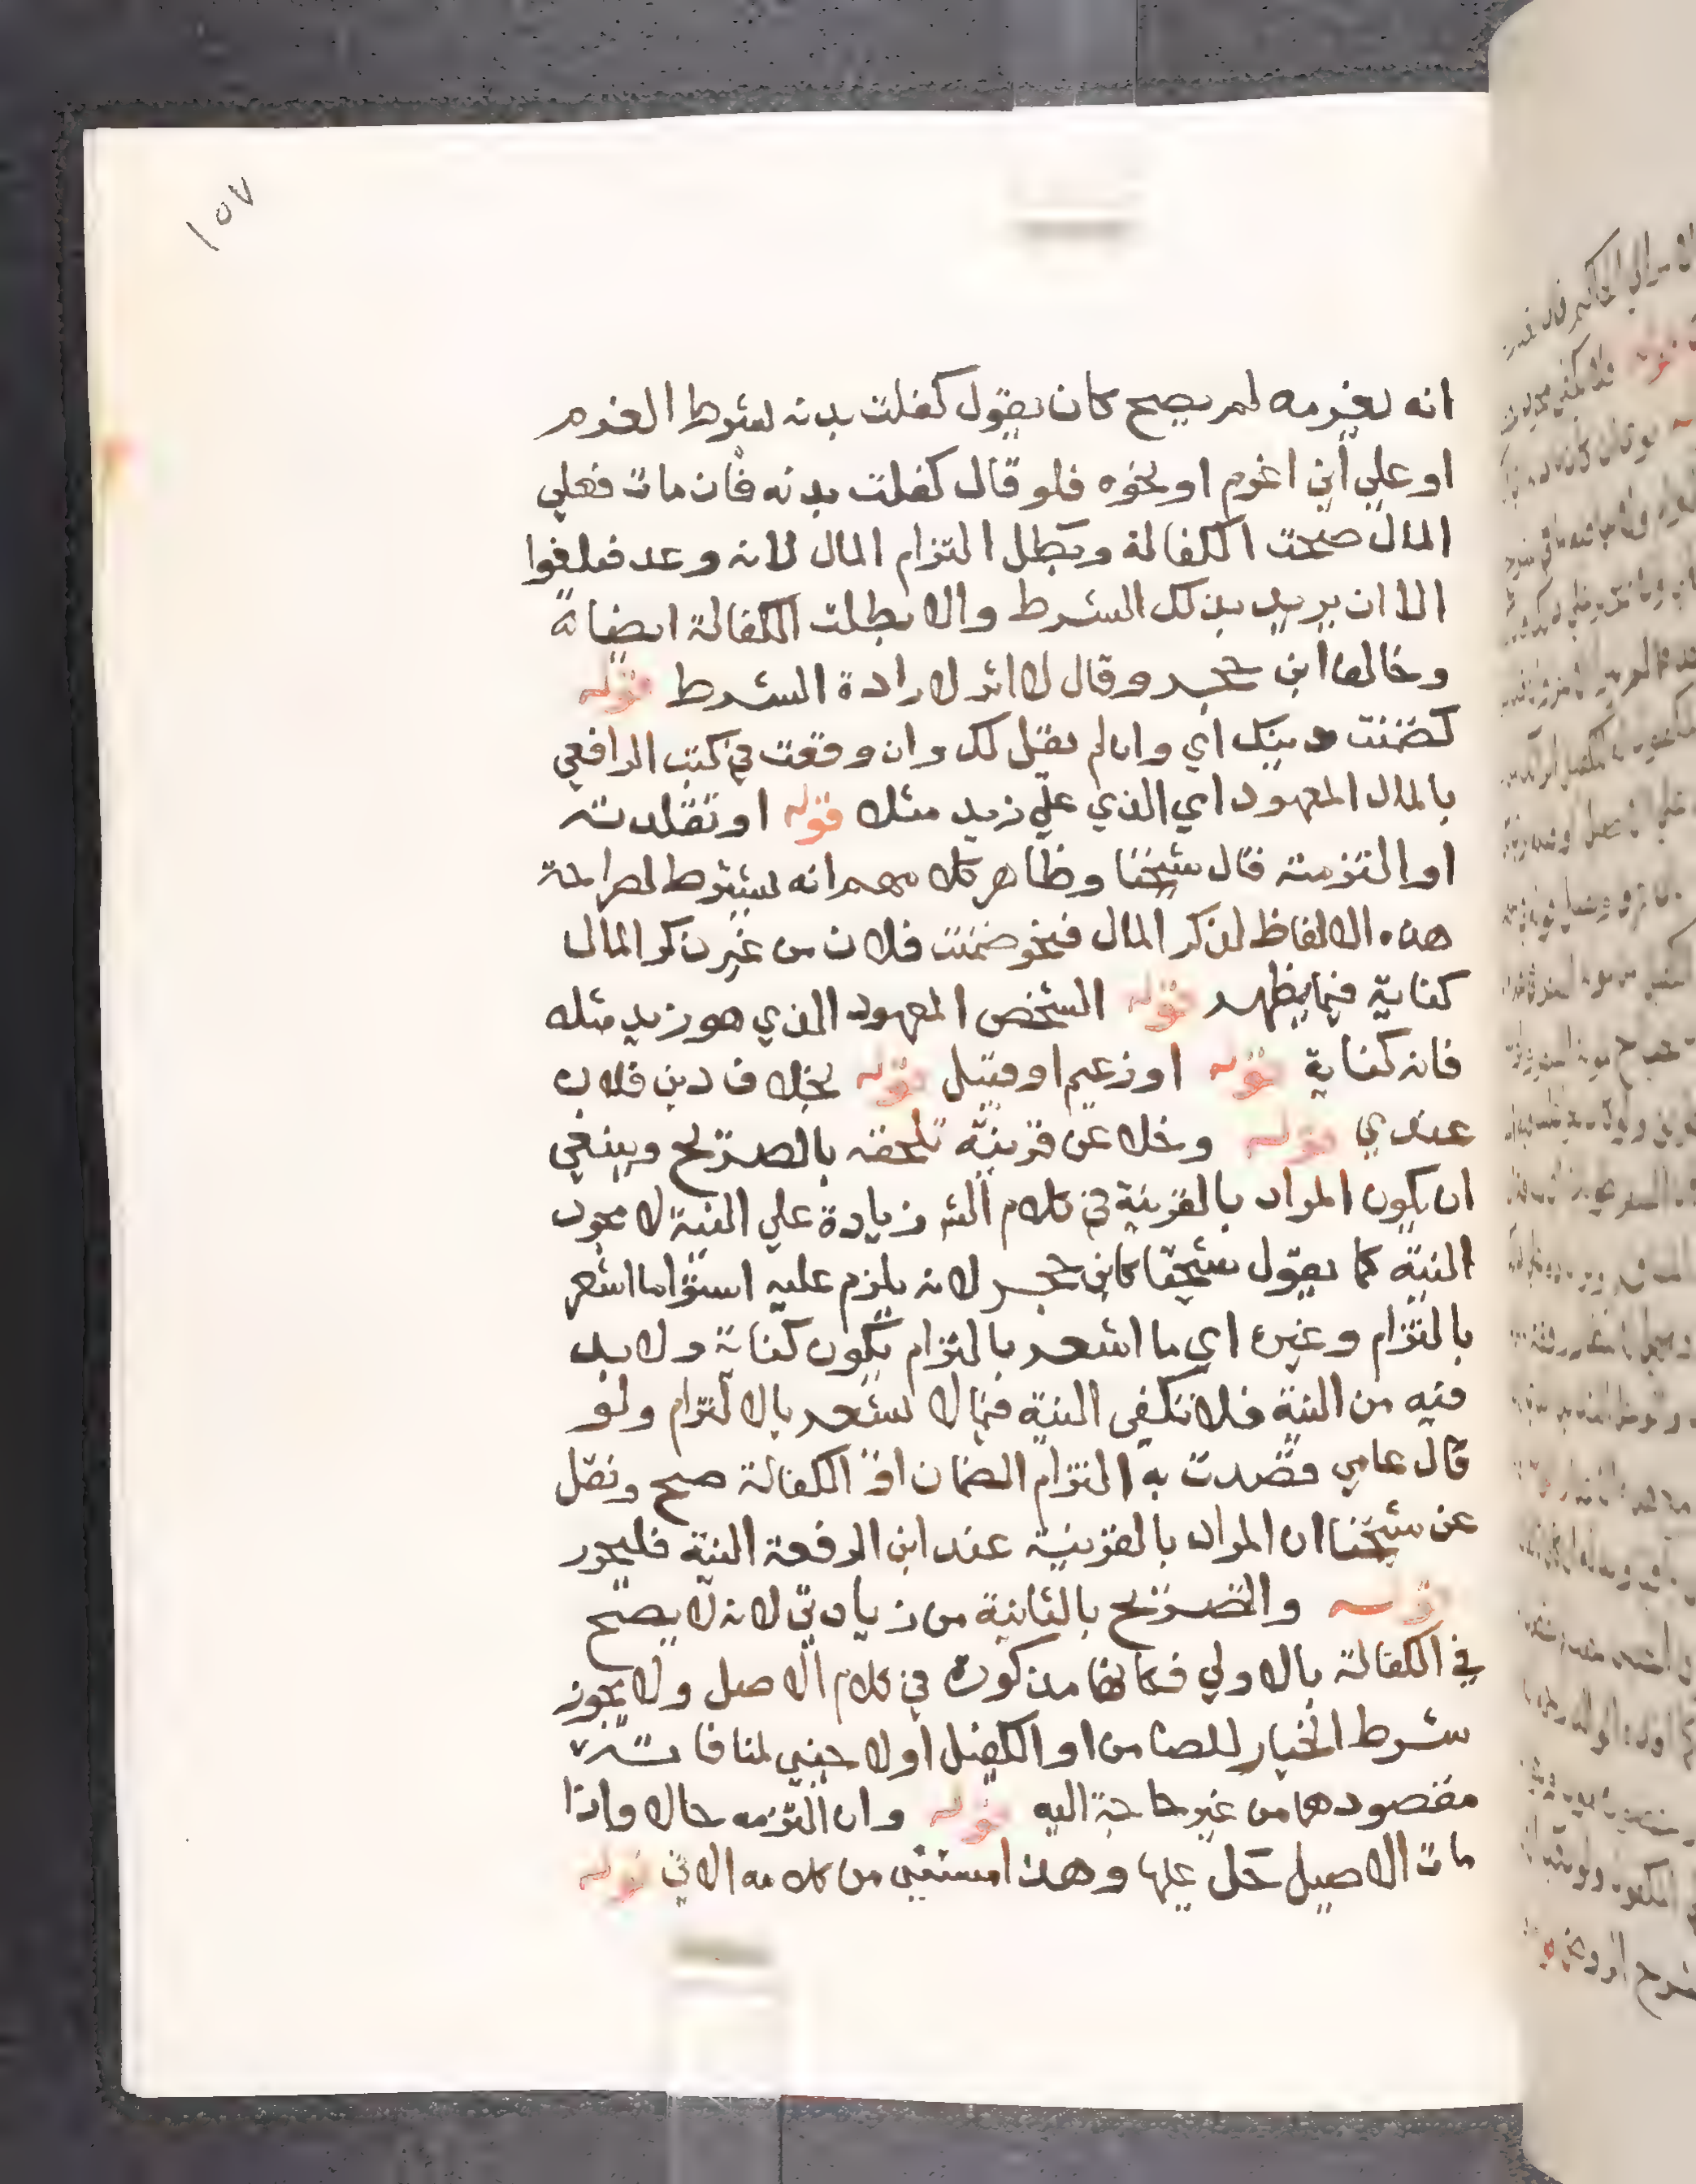 ١٥٧
انه يغرمه لم يصح كان يقول كفلت بدنه بشرط الغرم
او علي أني اغرم او نحوه فلو قال كفلت بدنه فان مات فعلي
المال صحت الكفالة وبطل التزام المال لانه وعد فيلغوا
الا ان يريد بذلك الشرط والا بطلت الكفالة ايضا
وخالف ابن حجر وقال لا اثر لارادة الشرط قوله
كضمنت دينك اي وان لم يقل لك وان وقعت في كتب الرافعي
بالمال المعهود اي الذي علي زيد مثله قوله او تقلدته
او التزمته قال شيخنا وظاهر كلامهم انه يشترط لصراحة
هذه الالفاظ لذكر المال فنحو ضمنت فلان من غير ذكر المال
كناية فيما يظهر قوله الشخص المعهود الذي هو زيد مثله
فانه كناية قوله او زعيم او قبيل قوله بخلاف دين فلان
عندي قوله وخلا عن قرينة تلحقه بالصريح وينبغي
ان يكون المراد بالقرينة في كلام الش زيادة علي النية لا مجرد
النية كما يقول شيخنا كابن حجر لانه يلزم عليه استوا ما اشعر
بالتزام وغيره اي ما اشعر بالتزام يكون كناية ولا بد
فيه من النية فلا تكفي النية فيما لا يشعر بالالتزام ولو
قال عامي قصدت به التزام الضمان او الكفالة صح ونقل
عن شيخنا ان المراد بالقرينة عند ابن الرفعة النية فليحرر
قوله والتصريح بالثانية من زيادتي لانه لا يصح
في الكفالة بالاولي فكانها مذكورة في كلام الاصل ولا يجوز
شرط الخيار للضامن او الكفيل او لاجنبي لمنافاته
مقصودهما من غير حاجة اليه قوله وان التزمه حالا واذا
مات الاصيل حل عليها وهذا مستثني من كلامه الاتي قوله